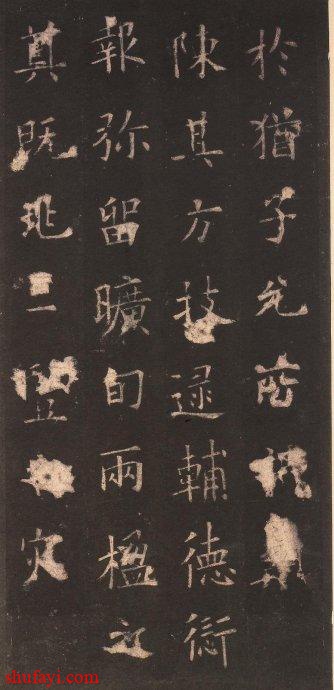 於猶子所
陳其方技逮輔德愆
報弥留曠旬兩楹之
奠既兆二豎灾
shufayi.com